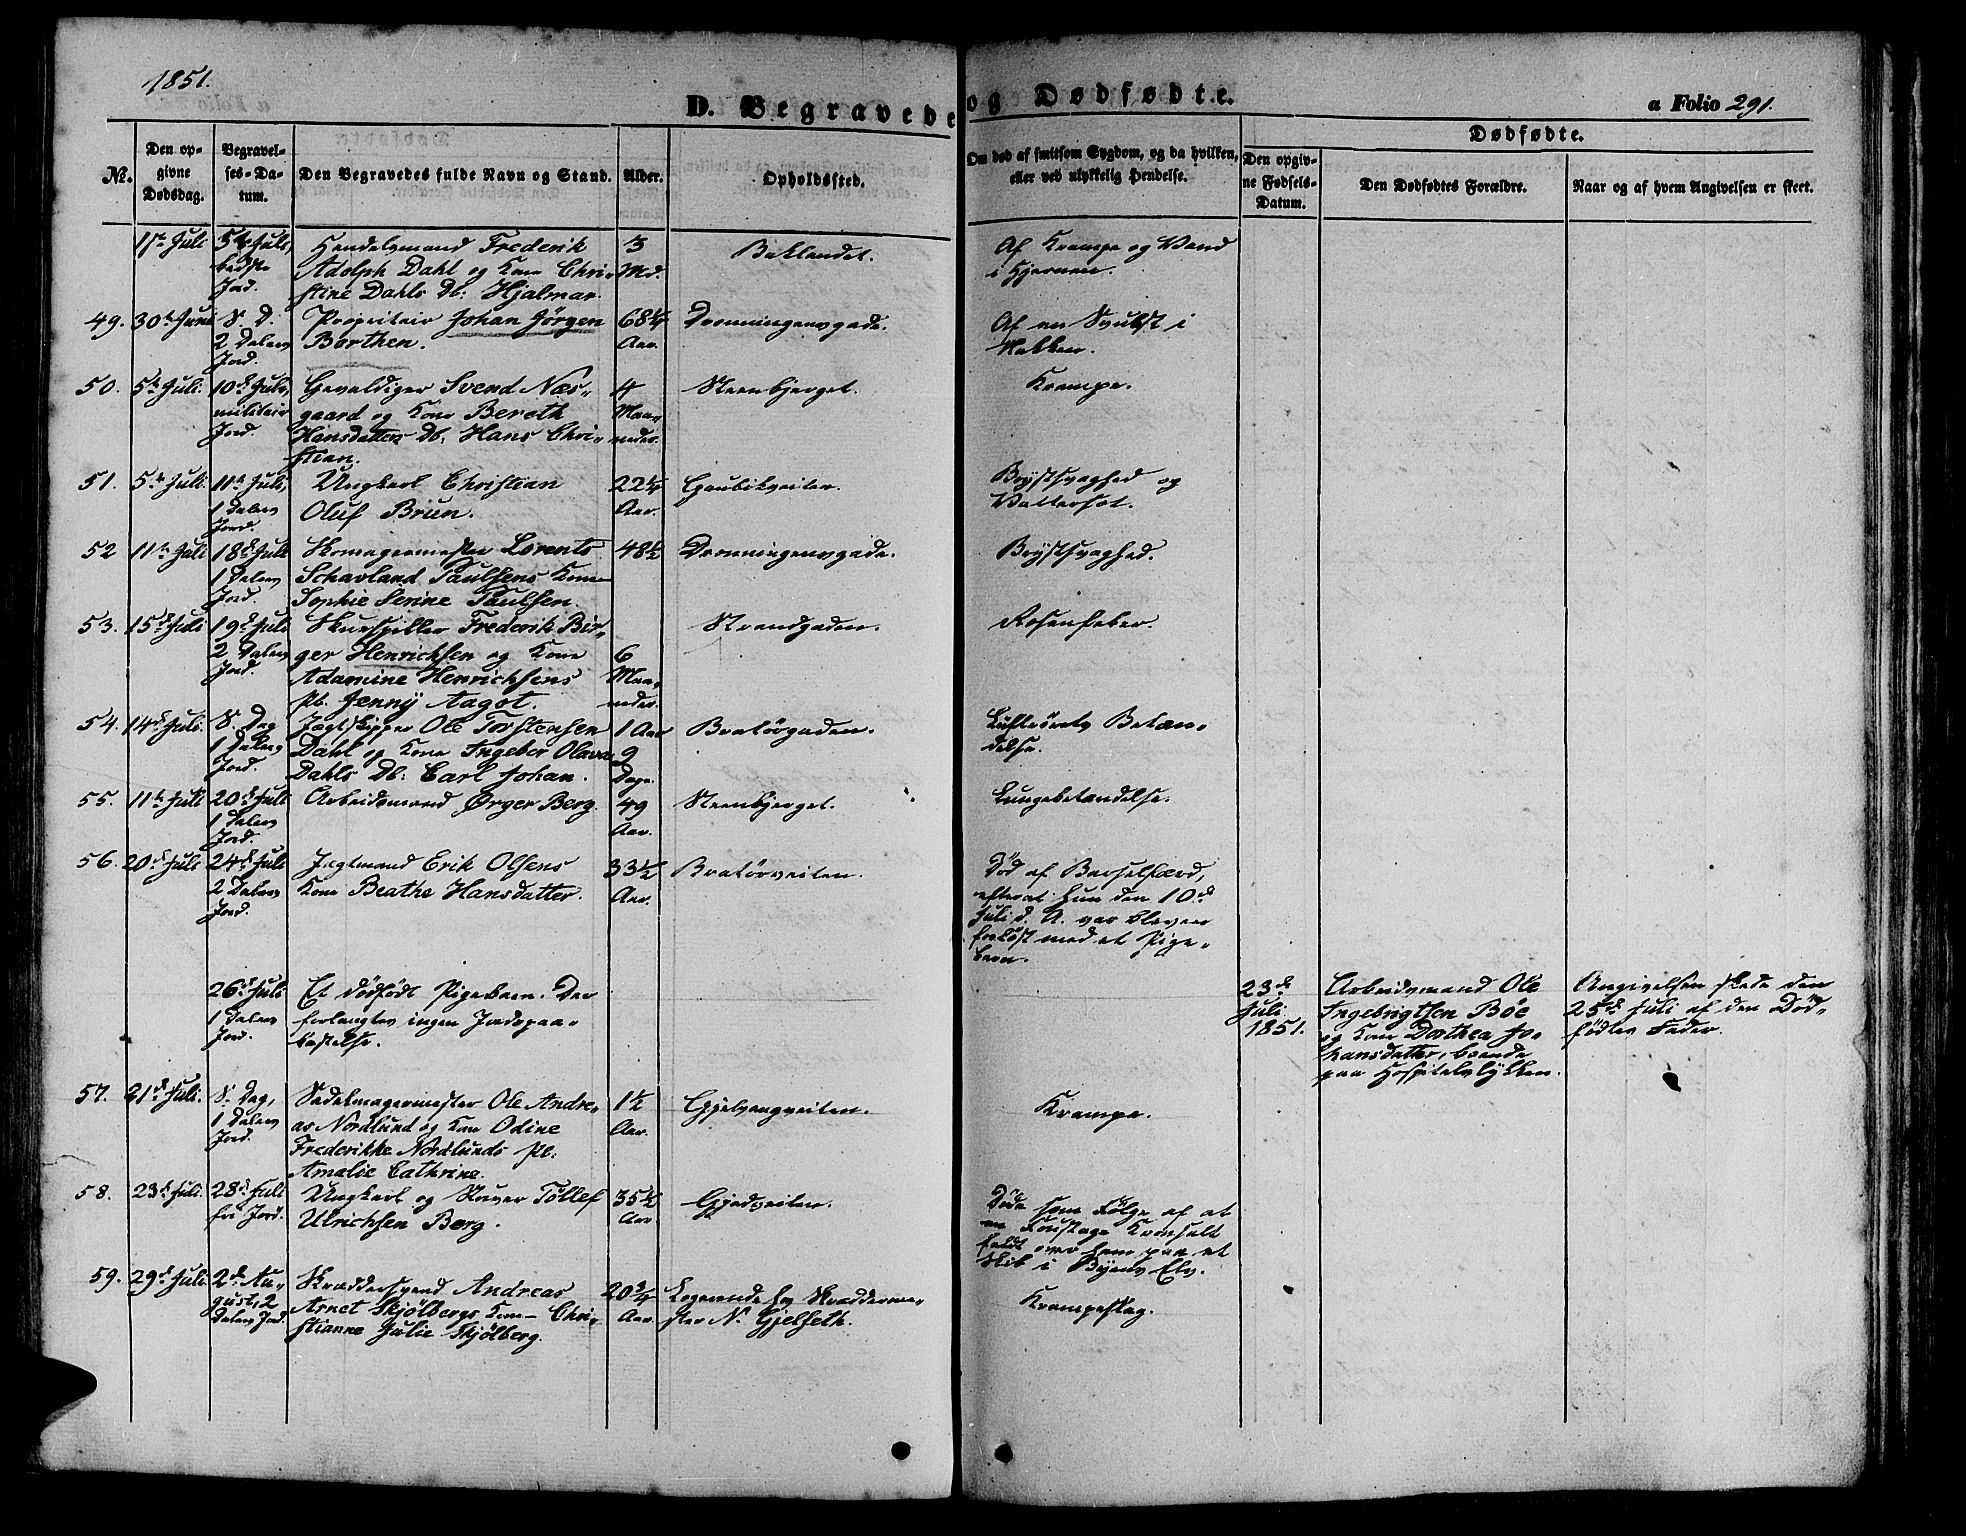 1851.
D. Begravede og Dødfødte.
a Folio 291.
No.
Den op-
givne
Dødsdag.
Begravel-
ses-Da-
tum.
Den Begravedes fulde Navn og Stand.
Alder.
Opholdssted.
Om død af smitsom Sygdom, og da hvilken,
eller ved ulykkelig Hendelse.
Dødfødte.
Den opgiv-
ne Fødsels-
Datum.
Den Dødfødtes Forældre.
Naar og af hvem Angivelsen er skeet.
1ste Juli
5te Juli,
bedste
Jord.
Handelsmand Frederik
Adolph Dahl og Kone Chri-
stine Dahls Db: Hjalmar.
3
Md.
Baklandet.
Af Krampe og Vand
i Hjernen.
49.
30te Juni
S. D.
2 Dalers
Jord.
Propritair Johan Jørgen
Borthen.
68 1/4
Aar.
Dronningensgade.
Af en Svulst i
Nakken.
50.
5te Juli.
10de Juli,
militair
Jord.
Gevaldiger Svend Næs-
gaard og Kone Bereth
Hansdatters Db: Hans Chri-
stian.
4
Maa-
neder.
Steenbjerget.
Krampe.
51.
5te Juli.
11te Juli,
1 Dalers
Jord.
Ungkarl Christian
Oluf Brun.
22 1/4
Aar.
Gaubikveiten.
Brystsvaghed og
Vattersot.
52
11te Juli
18de Juli
1 Dalers
Jord.
Skomagermester Lorents
Schavland Paulsens Kone
Sophie Serine Paulsen.
48 1/2
Dronningensgade.
Brystsvaghed.
53.
15de Juli
19de Juli
2 Dalers
Jord.
Skuespiller Frederik Bir-
ger Henrichsen og Kone
Adamine Henrichsens
Pb. Jenny Aagot.
6
Maa-
neder.
Strandgaden.
Rosenfeber.
54.
14de Juli.
S. Dag
1 Dalers
Jord.
Jagtskipper Ole Torstensen
Dahl og Kone Ingebor Olava
Dahls Db: Carl Johan.
1 Aar
9
Dage.
Bratørgaden.
Luftrørets Betæn-
delse.
55.
11te Juli
20de Juli
1 Dalers
Jord.
Arbeidsmand Ørger Berg.
49
Aar.
Steenbjerget.
Lungebetændelse.
56.
20de Juli
24de Juli
2 Dalers
Jord.
Jagtmand Erik Olsens
Kone Beathe Hansdatter.
33 1/2
Aar.
Bratørveiten.
Død af Barselfærd,
efterat hun den 10de
Juli d. A. var bleven
forløst med et Pige-
barn.
26de Juli
1 Dalers
Jord.
Et dødfødt Pigebarn. Der
forlangtes ingen Jordspaa-
kastelse.
23de
Juli
1851.
Arbeidsmand Ole
Ingebrigtsen Böe
og Kone Dorthea Jo-
hansdatter, boende
paa Hospitalsløkken.
Angivelsen skede den
25de Juli af den Død-
fødtes Fader.
57.
21de Juli.
S. Dag,
1 Dalers
Jord.
Sadelmagermester Ole Andre-
as Nordlund og Kone Odine
Frederikke Nordlunds Pb:
Amalie Cathrine.
1 1/2
Aar.
Gjelvangveiten.
Krampe.
58.
23de Juli.
28de Juli
fri Jord.
Ungkarl og Stuver Töllef
Ulrichsen Berg.
35 1/2
Aar.
Gjedveiten.
Døde som Følge af at
en Foustage Kornsalt
faldt over ham paa et
Skib i Byens Elv.
59.
29de Juli
2den Au-
gust, 2
Dalers Jord.
Skræddersvend Andreas
Arnet Skjölbergs Kone Chri-
stianne Julie Skjölberg.
20 3/4
Aar.
Logerende hos Skrædderme-
ster N. Gjelseth.
Krampeslag.